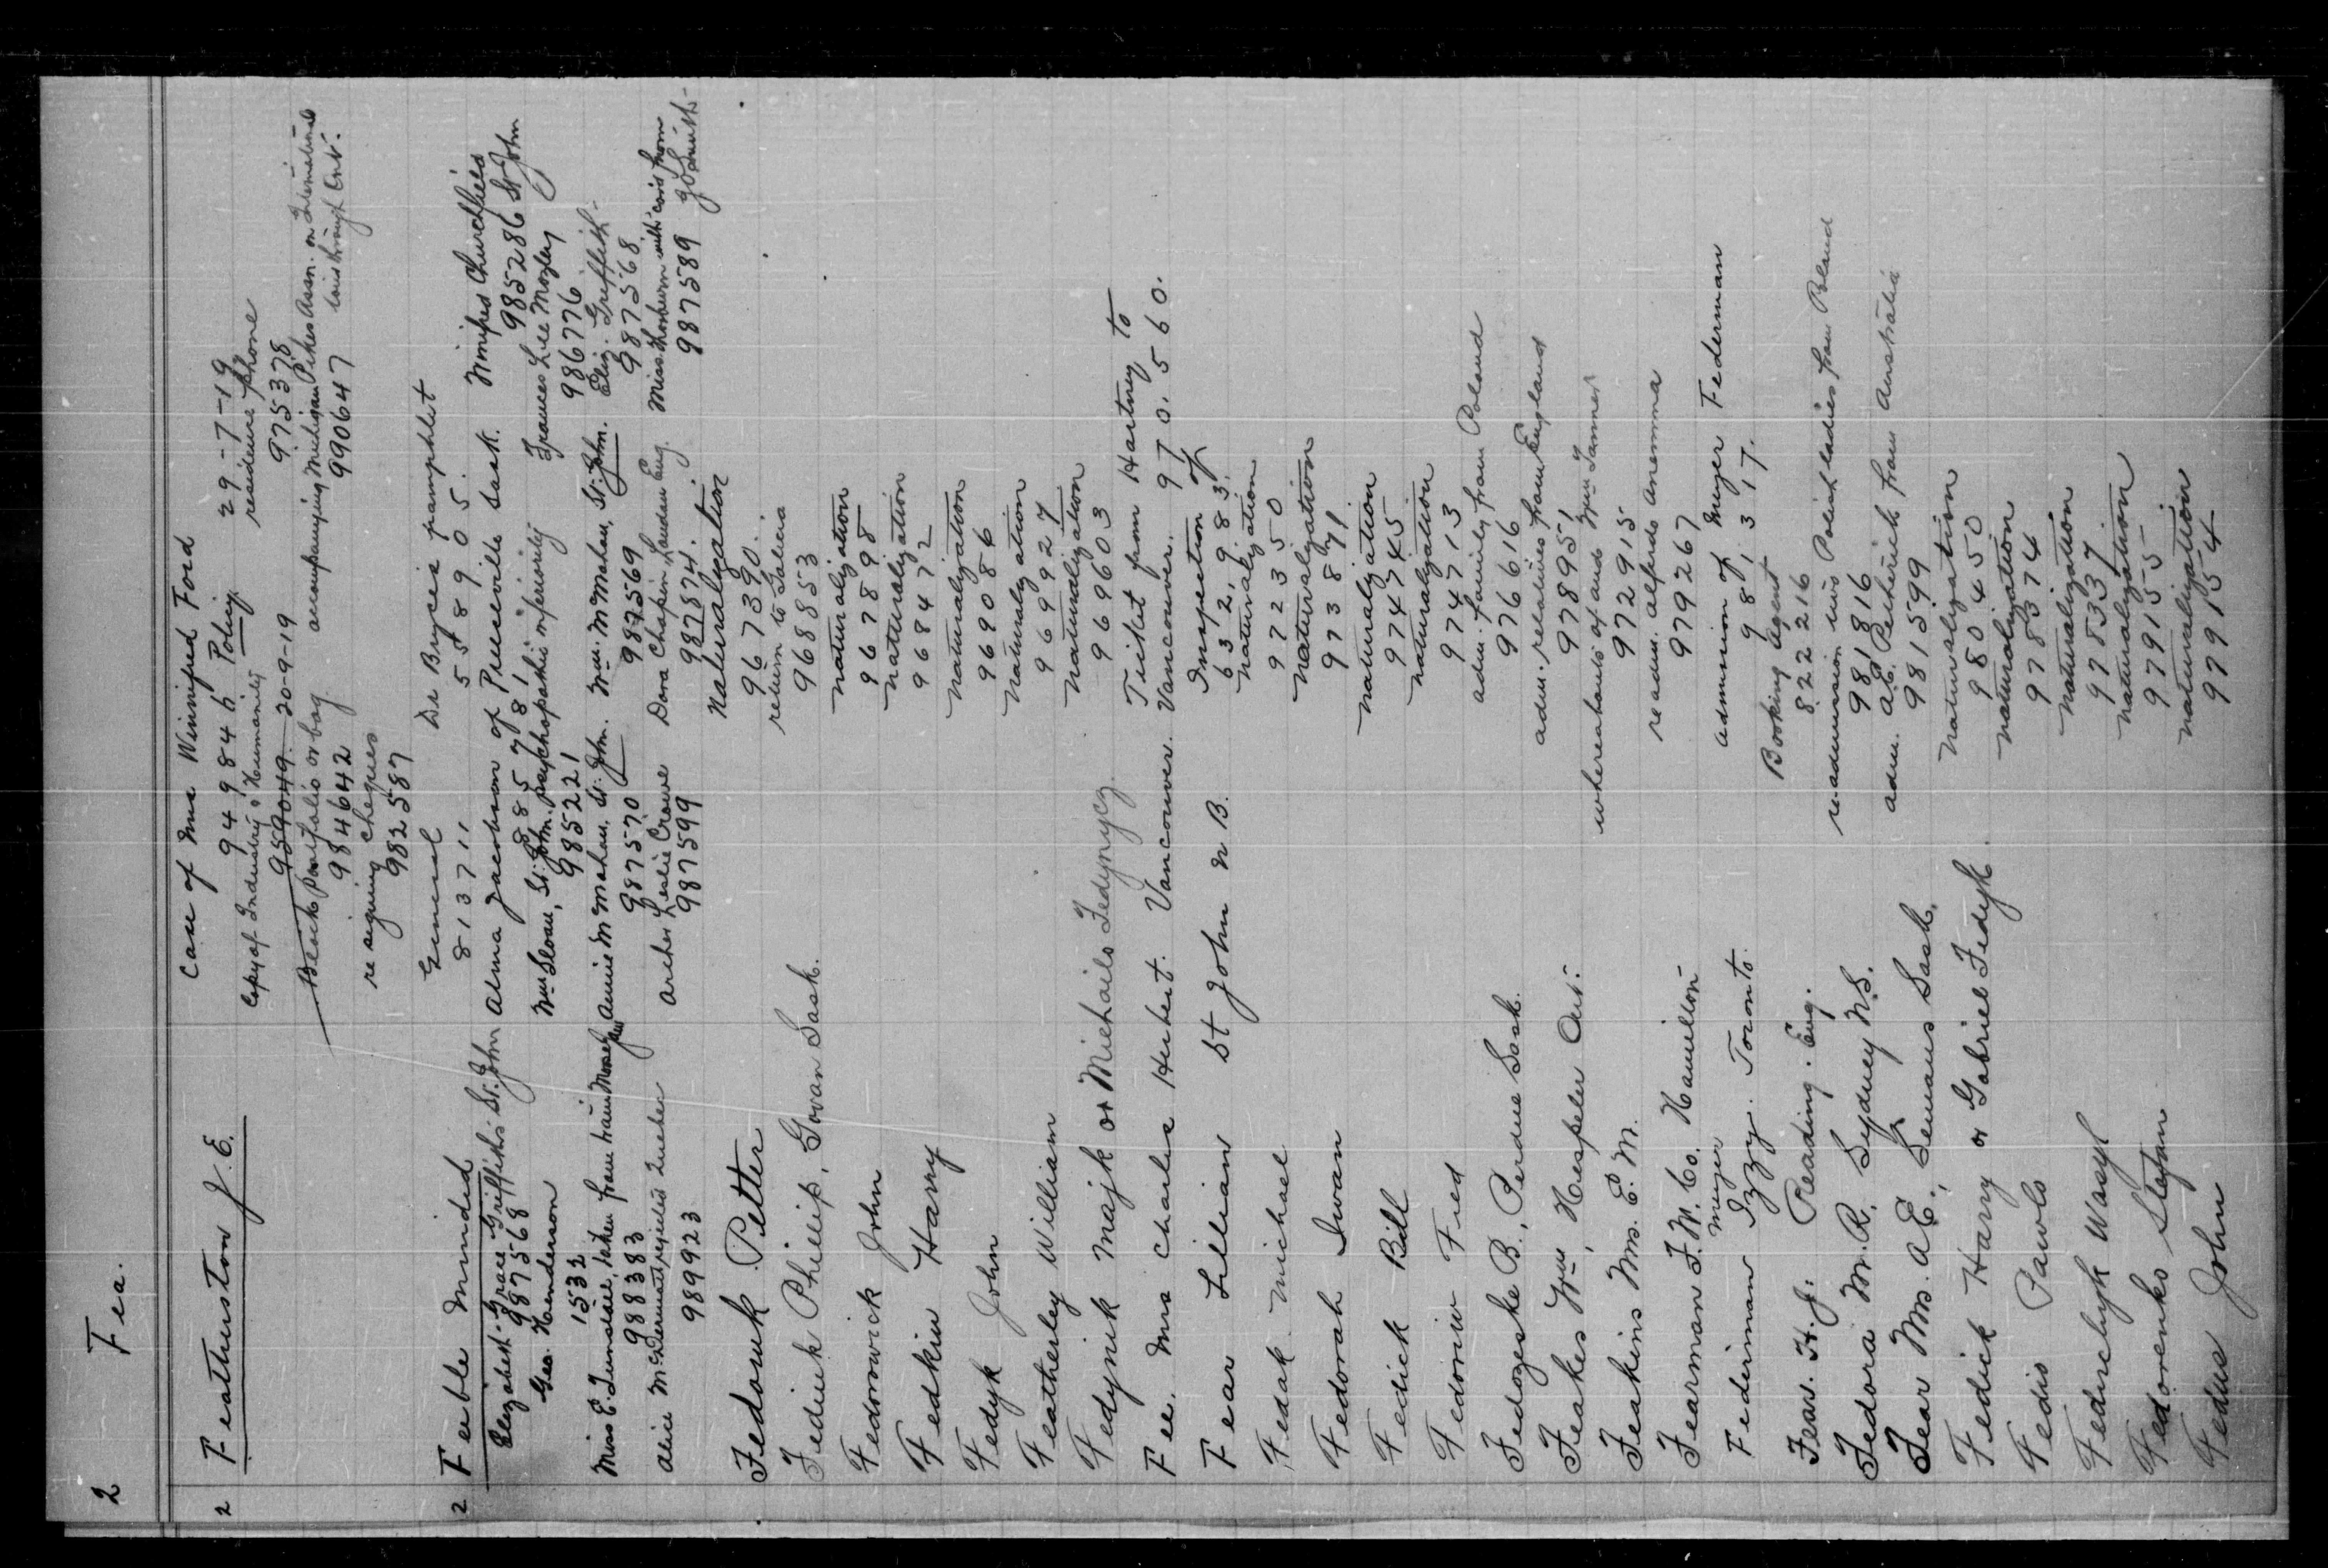 2 Fea.
2 Featherston J. E.
Case of Mrs Winnifred Ford
949846 Policy
29-7-19
Copy of Industry & Humanity
residence phone
959049 20-9-19
975378
Black Portfolio or bag
accompanying Michigan Pikes Assn. on
984642
990647
re signing cheques
982587
2 Feeble Minded
General
De Bryce's pamphlet
813711
558905.
Elizabeth & Grace Griffiths St. John
Alma Jacobson of Preeceville Sask.
987568
885781
985286 St John
Geo. Henderson
Wm Sloan, St. John. psychopathic inferiority
Frances Lee Mozley
1532
985221
986776
Miss E. Dunsdale, taken from train Moose Jaw
Annie McMahan, St. John.
Wm. McMahan, St. John.
Eliz. Griffith
988383
987570
987569
987568
Alice McDermott
Archer Leslie Crowe
Dora Chapin, London Eng.
989923
987599
987874.
987589
Fedouk Petter
Naturalization
967390.
Fediuk Phillip, Govan Sask.
return to Galicia
968853
Fedorowick John
naturalization
967898
Fedkiw Harry
naturalization
968472
Fedyk John
Naturalization
969086
Featherley William
Naturalization
969927
Fedynik Majk or Michailo Fedynycz
Naturalization
969603
Fee. Mrs Charlie Herbert. Vancouver.
Ticket from Hartney to
Vancouver. 970.560.
Fear Lillian St John N B.
Inspection of
632,983.
Fedak Michael
Naturalization
972350
Fedorah Iwan
Naturalization
973871
Fedick Bill
naturalization
974745
Fedoriw Fred
naturalization
974713
Fedozeske B., Perdue Sask.
adm. family from Poland
976616
Feakes Wm, Hespeler Ont.
adm. relatives from England
978951
Feakins Mrs. E. M.
whereabouts of and Wm Tanner
972915
Fearman F. W. Co. Hamilton
re adm. Alfredo
979267
Federman Meyer Izzy. Toronto.
admission of Meyer Federman
981317.
Fear. H. J. Reading. Eng.
Booking Agent
822216
Fedora M. R. Sydney N.S.
re admission two Polish ladies from Poland
981816
Fear Mrs. A E., Semans Sask.
adm. A.E. Petherick from Australia
981599
Fedick Harry or Gabriel Fedyk
Naturalization
980450
Fedio Pawlo
Naturalization
978374
Federchyk Wasyl
Naturalization
978337
Fedorenko Stefan
Naturalization
979155
Fedus John
Naturalization
979154